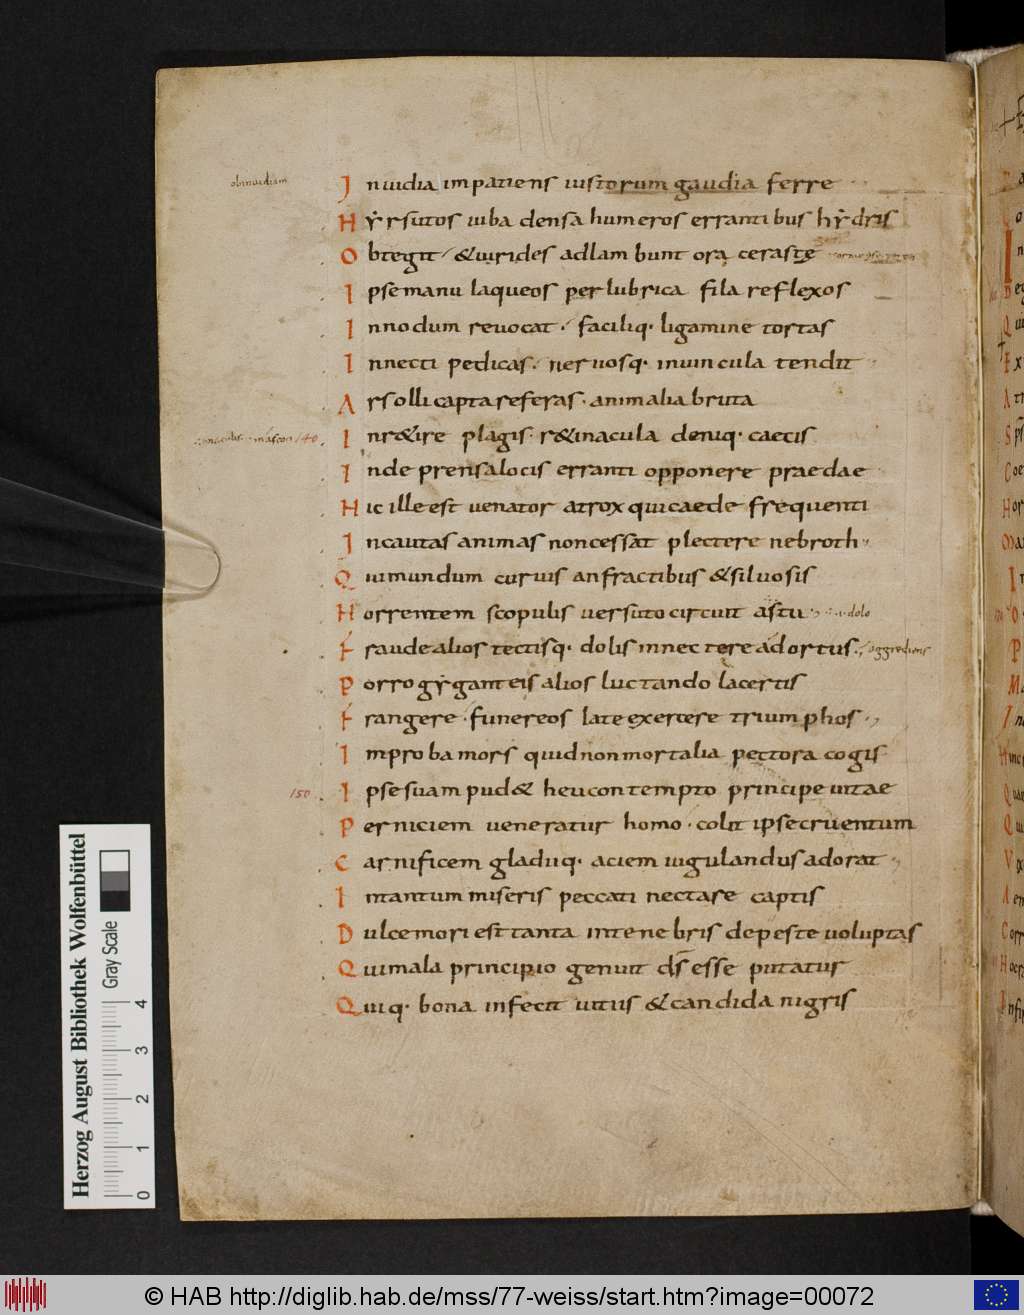 obinuidiam
Inuidia impatiens iustorum gaudia ferre
Hẏrsutos iuba densa humeros errantibus hẏdris
Obtegit & uirides adlambunt ora ceraste
Ipse manu laqueos per lubrica fila reflexos
Innodum reuocat. faciliq· ligamine tortas
Innecti pedicas. neruosq· inuincula tendit
Ars olli capta referas. animalia bruta
140
Inr&ire plagis. r&inacula deniq· caecis
Inde prensa locis erranti opponere praedae
Hic ille est uenator atrox qui caede frequenti
Incautas animas non cessat plectere nebroth
Qui mundum curuis anfractibus & siluosis
Horrentem scopulis uersuto circuit astu
dolo
Fraude alios tectisq· dolis innectere adortus
aggrediens
Porro gẏganteis alios luctando lacertis
Frangere. funereos late exercere triumphos
Improba mors quid non mortalia pectora cogis
150
Ipse suam pud& heu contempto principe uitae
Perniciem ueneratur homo. colit ipse cruentum
Carnificem gladiiq· aciem iugulandus adorat
Intantum miseris peccati nectare captis
Dulce mori est tanta intenebris de peste uoluptas
Qui mala principio genuit ds esse putatur
Quiq· bona infecit uitiis & candida nigris
Herzog August Bibliothek Wolfenbüttel
Gray Scale
0 1 2 3 4
© HAB http://diglib.hab.de/mss/77-weiss/start.htm?image=00072